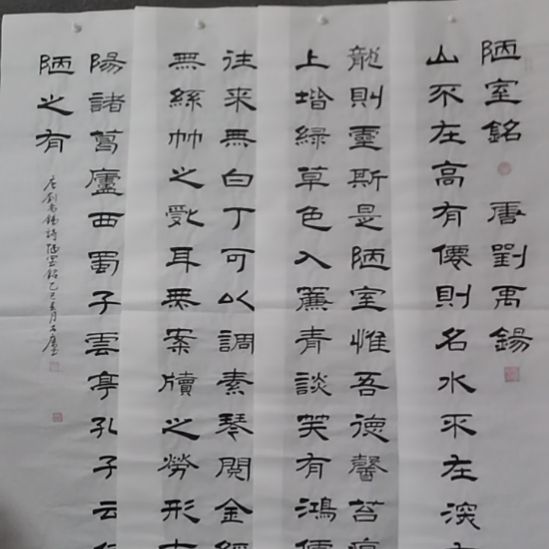 陋室銘 唐劉禹錫
山不在高有僊則名水不在深
龍則靈斯是陋室惟吾德馨苔痕
上堦綠草色入簾青談笑有鴻儒
往来無白丁可以調素琴閱金經
無絲竹之亂耳無案牘之勞形
陽諸葛廬西蜀子雲亭孔子云
陋之有
唐劉禹錫詩陋室銘乙巳